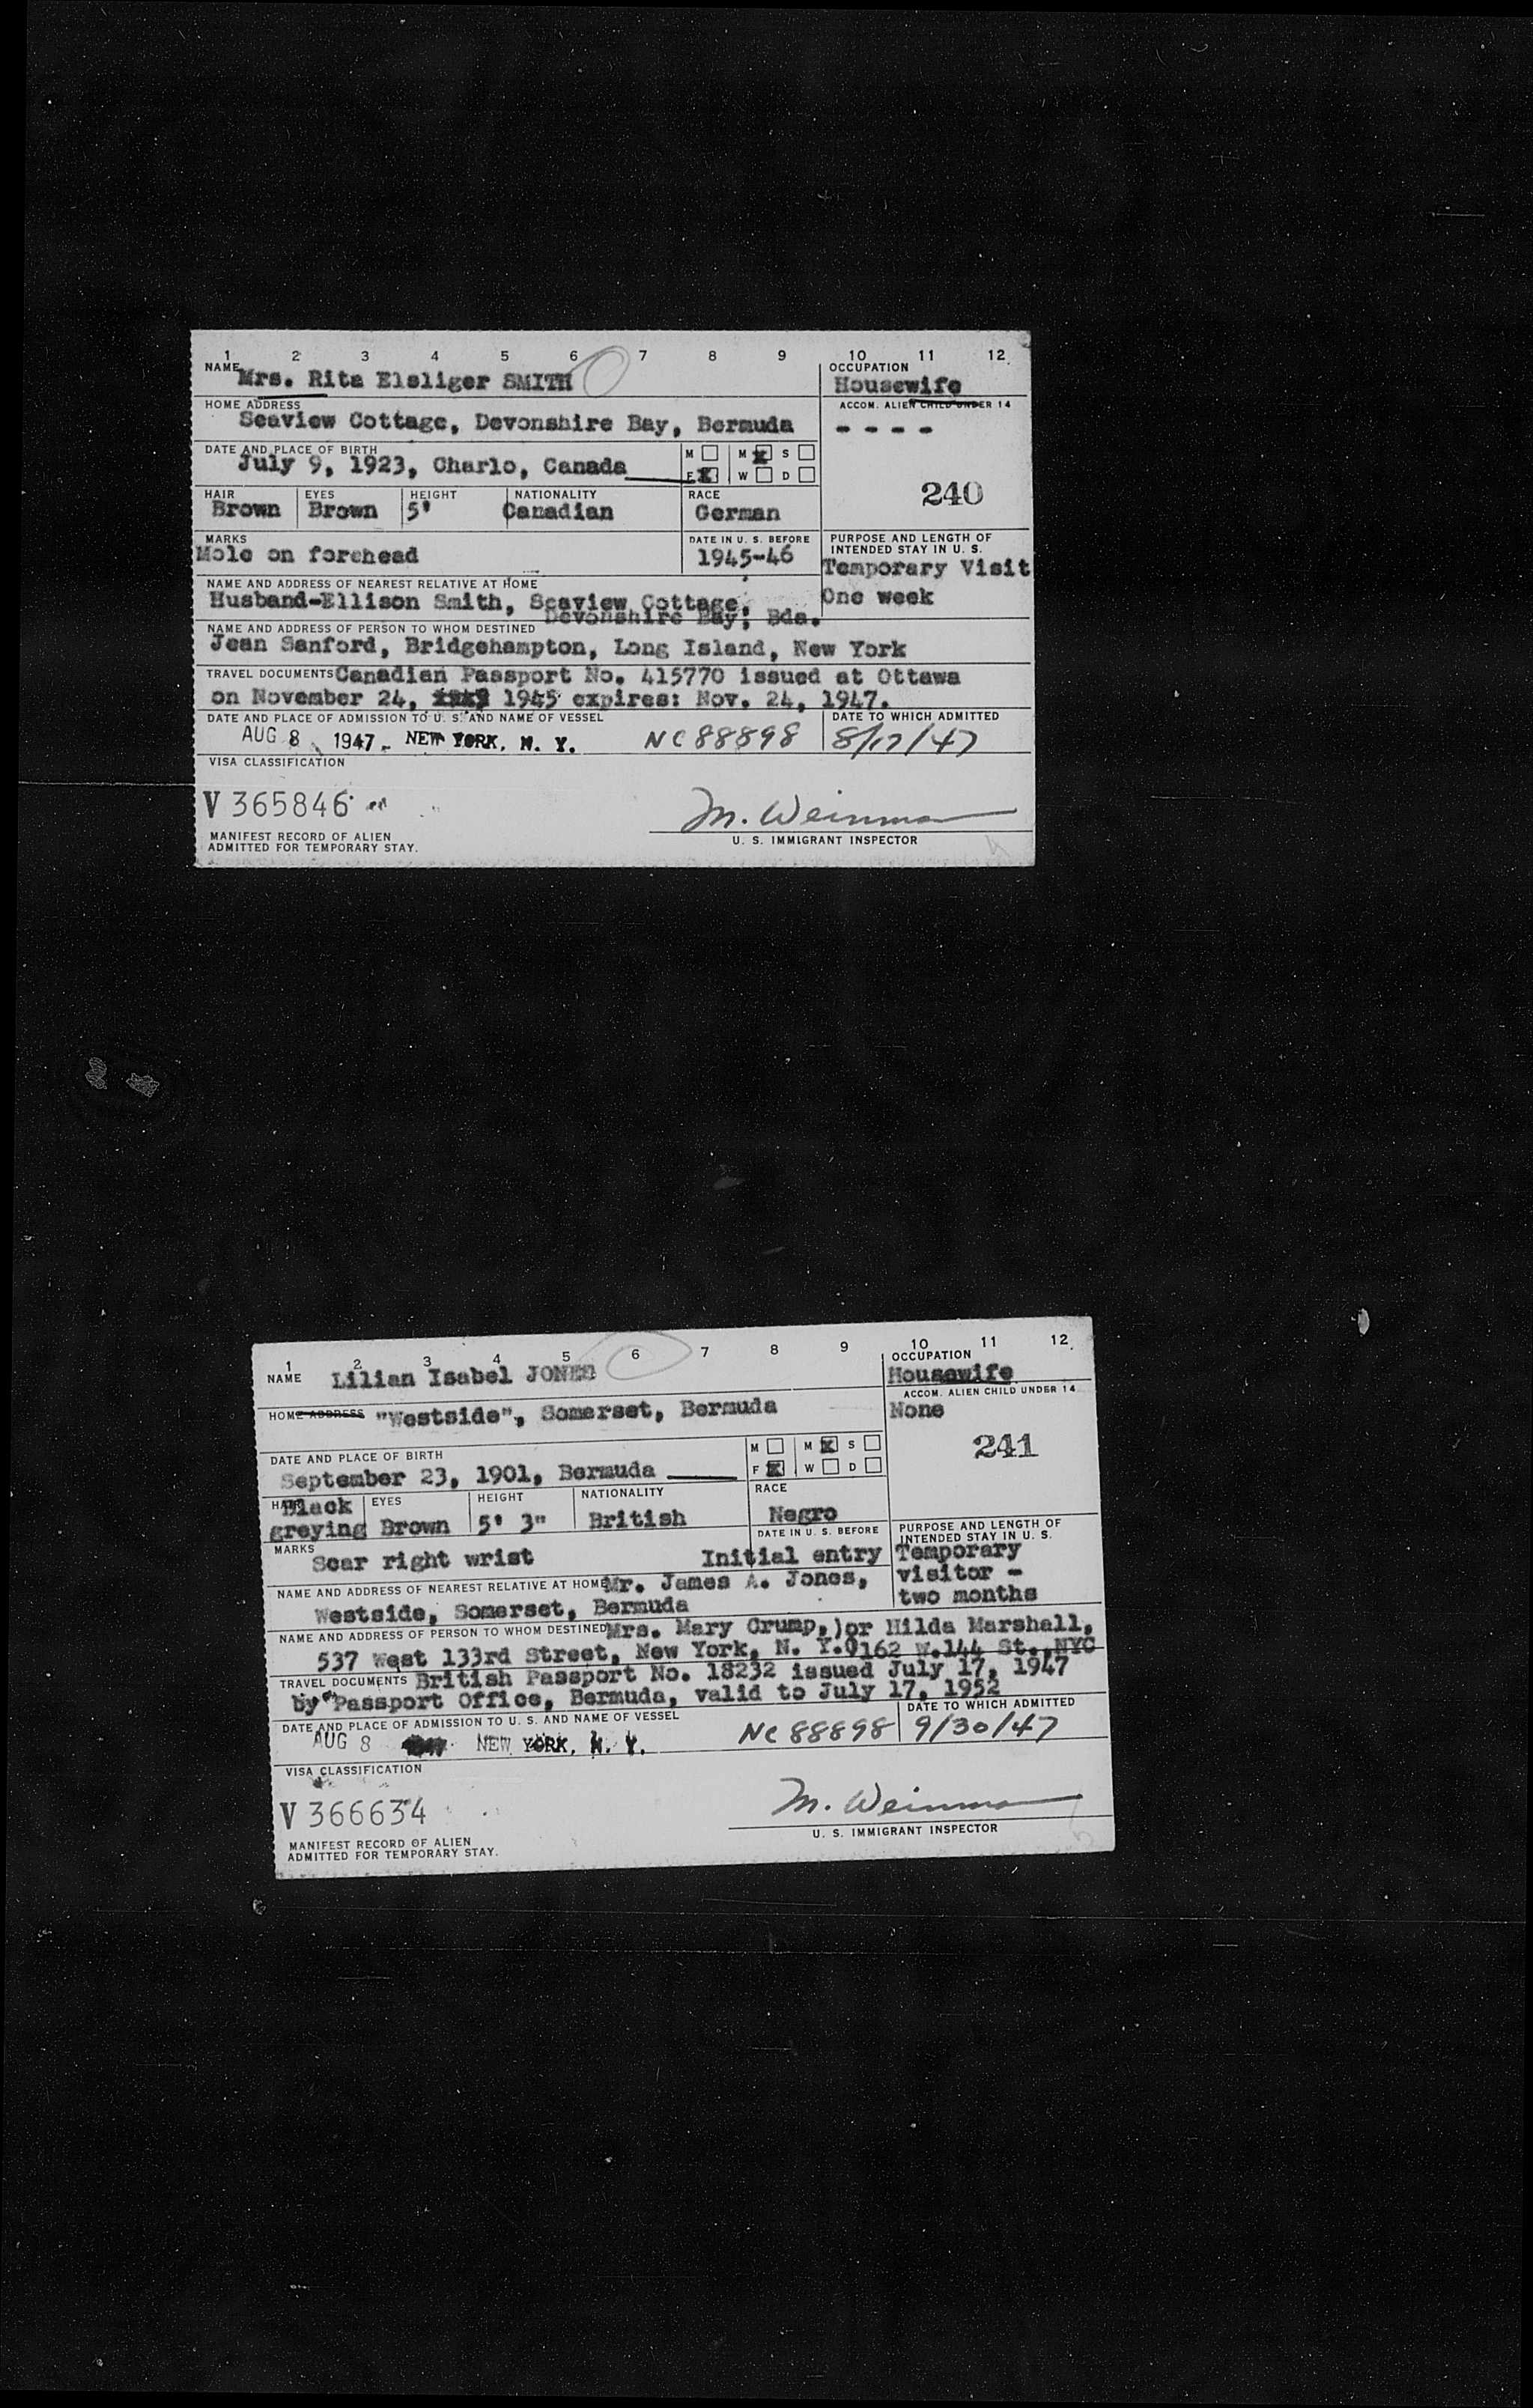 1 2 3 4 5 6 7 8 9 10 11 12
NAME Mrs. Rita Elsliger SMITH
OCCUPATION
Housewife
HOME ADDRESS
Seaview Cottage, Devonshire Bay, Bermuda
ACCOM. ALIEN CHILD UNDER 14
- - - -
DATE AND PLACE OF BIRTH
July 9, 1923, Charlo, Canada
M M X S
F X W D
240
HAIR EYES HEIGHT NATIONALITY RACE
Brown Brown 5' Canadian German
MARKS DATE IN U. S. BEFORE
Mole on forehead 1945-46
PURPOSE AND LENGTH OF
INTENDED STAY IN U. S.
Temporary Visit
One week
NAME AND ADDRESS OF NEAREST RELATIVE AT HOME
Husband-Ellison Smith, Seaview Cottage,
Devonshire Bay, Bda.
NAME AND ADDRESS OF PERSON TO WHOM DESTINED
Jean Sanford, Bridgehampton, Long Island, New York
TRAVEL DOCUMENTS Canadian Passport No. 415770 issued at Ottawa
on November 24, 1945 expires: Nov. 24, 1947.
DATE AND PLACE OF ADMISSION TO U. S. AND NAME OF VESSEL DATE TO WHICH ADMITTED
AUG 8 1947 NEW YORK, N. Y. NC 88898 8/17/47
VISA CLASSIFICATION
V 365846
M. Weinman
MANIFEST RECORD OF ALIEN
ADMITTED FOR TEMPORARY STAY.
U. S. IMMIGRANT INSPECTOR
1 2 3 4 5 6 7 8 9 10 11 12
NAME Lilian Isabel JONES
OCCUPATION
Housewife
HOME ADDRESS "Westside", Somerset, Bermuda
ACCOM. ALIEN CHILD UNDER 14
None
DATE AND PLACE OF BIRTH
September 23, 1901, Bermuda
M M X S
F X W D
241
HAIR EYES HEIGHT NATIONALITY RACE
Black
greying Brown 5' 3" British Negro
MARKS DATE IN U. S. BEFORE
Scar right wrist Initial entry
PURPOSE AND LENGTH OF
INTENDED STAY IN U. S.
Temporary
visitor -
two months
NAME AND ADDRESS OF NEAREST RELATIVE AT HOME Mr. James A. Jones,
Westside, Somerset, Bermuda
NAME AND ADDRESS OF PERSON TO WHOM DESTINED Mrs. Mary Crump,)or Hilda Marshall,
537 West 133rd Street, New York, N. Y.)162 W.144 St.,NYC
TRAVEL DOCUMENTS British Passport No. 18232 issued July 17, 1947
by Passport Office, Bermuda, valid to July 17, 1952
DATE AND PLACE OF ADMISSION TO U. S. AND NAME OF VESSEL DATE TO WHICH ADMITTED
AUG 8 NEW YORK, N. Y. NC 88898 9/30/47
VISA CLASSIFICATION
V 366634
M. Weinman
MANIFEST RECORD OF ALIEN
ADMITTED FOR TEMPORARY STAY.
U. S. IMMIGRANT INSPECTOR